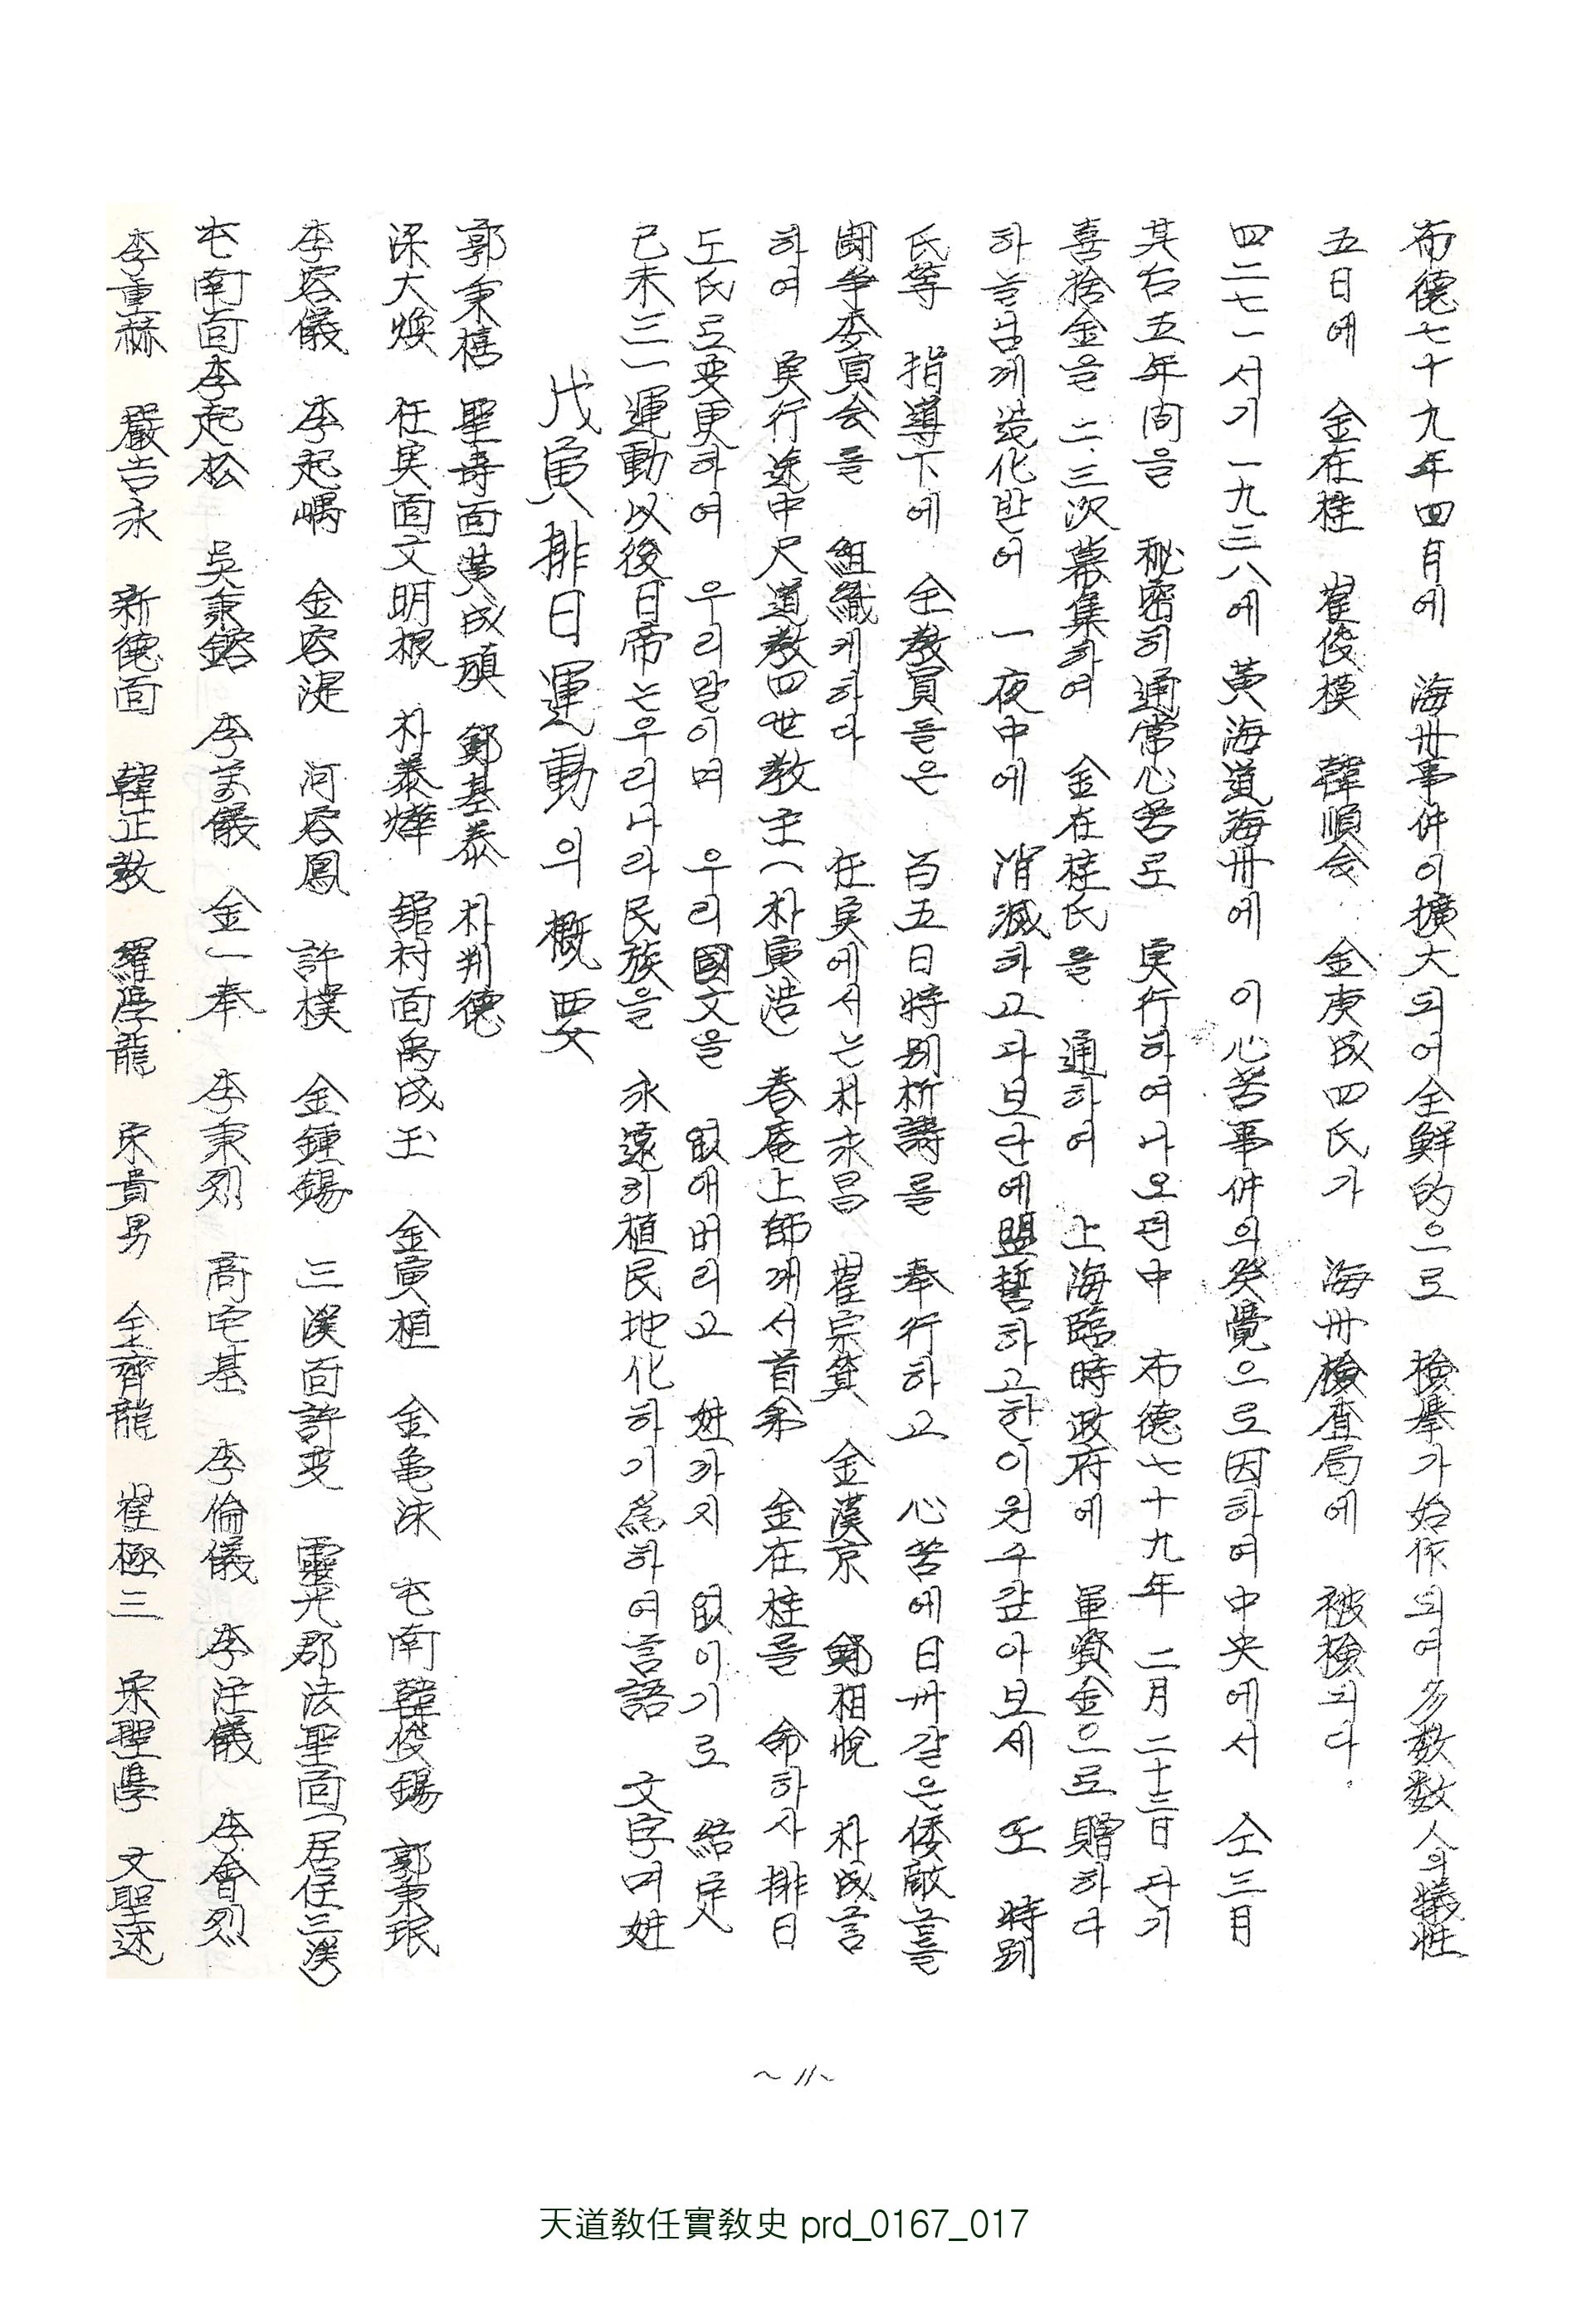 李重赫 嚴告永 新德面 韓正教 羅學龍 宋貴男 全齊龍 崔極三 宋聖學 文聖述
屯南面李起松 吳秉鎔 李萬儀 金一奉 李秉烈 高宅基 李倫儀 李注儀 李會烈
李容儀 李起嵎 金容湜 河容鳳 許㯙 金鍾錫 三溪面許燮 靈光郡法聖面(居住三溪)
梁大煥 任実面文明根 朴泰燁 舘村面禹成玉 金寅植 金亀泳 屯南韓俊錫 郭秉珉
郭秉禧 聖壽面黃成瑱 鄭基泰 朴判德
戊寅排日運動의概要
己未三一運動以後日帝는우리나라民族을 永遠히植民地化하기爲하여言語 文字며姓
도氏로変更하여 우리말이며 우리國文을 없애버리고 姓까지 없이기로 結定
하여 実行途中天道教四世教主(朴寅浩)春庵上師께서首弟 金在桂를 命하사排日
鬪争委員会를 組織케하다 任実에서는朴永昌 崔宗箕 金漢京 鄭相悅 朴成言
氏等 指導下에 全教員들은 百五日特別祈禱를 奉行하고 心苦에日卅같은倭敵들을
하늘님께造化받어 一夜中에 消滅하고자보단에盟誓하고한이원수갚아보세 또 特別
喜捨金을二.三次募集하여 金在桂氏을 通하여 上海臨時政府에 軍資金으로贈하다
其右五年間을 秘密히通常心苦로 実行하여나오던中 布德七十九年 二月二十三日자기
四二七一서기一九三八에 黃海道海州에 이心苦事件의発覺으로因하여中央에서 仝三月
五日에 金在桂 崔俊模 韓順会 金庚成四氏가 海州檢査局에 被検되다.
布德七十九年四月에 海州事件이擴大되어全鮮的으로 検擧가始作되여多数数人의犠牲
~11~
天道敎任實敎史 prd_0167_017